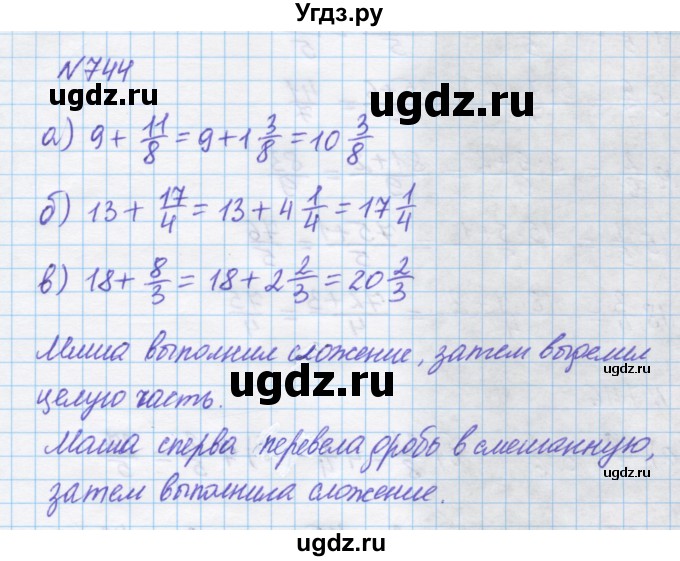 Угдз.ру
№744
а) 9 + 11/8 = 9 + 1 3/8 = 10 3/8
б) 13 + 17/4 = 13 + 4 1/4 = 17 1/4
в) 18 + 8/3 = 18 + 2 2/3 = 20 2/3
Миша выполнил сложение, затем выделил
целую часть.
Маша сперва перевела дробь в смешанную,
затем выполнила сложение.
ugdz.ru
ugdz.ru
ugdz.ru
ugdz.ru
ugdz.ru
ugdz.ru
ugdz.ru